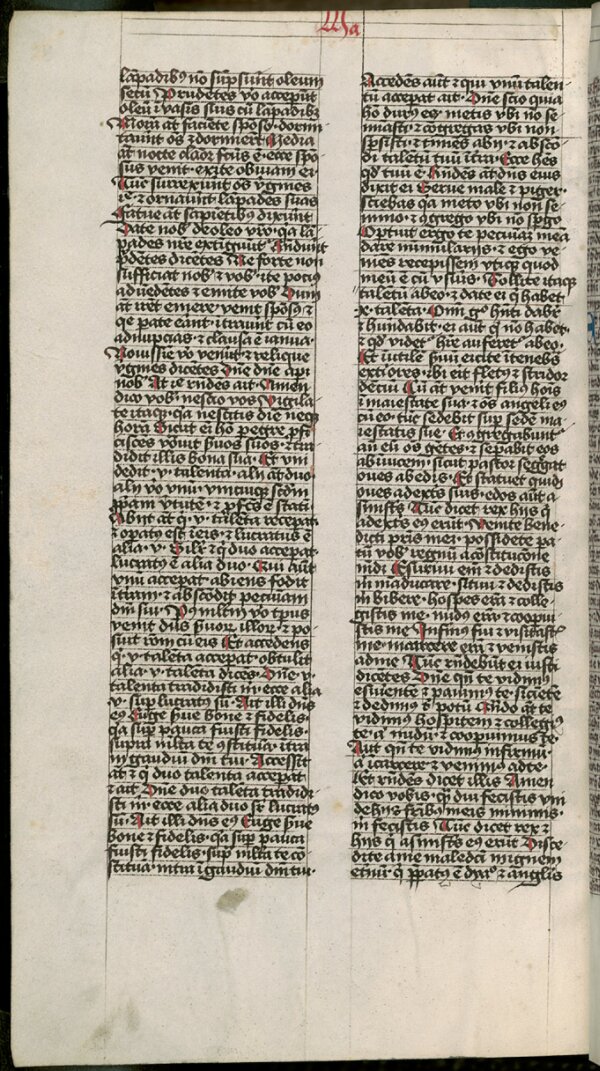 Ma
lāpadibꝰ nō sūpserunt oleum
secū Prudētes vo acceperūt
oleū ī vasis suis cū lāpadibꝫ
Morā āt faciēte spōso dormi
taverūt oēs ⁊ dormierūt Media
āt nocte clāor fcūs ē ecce spō
sus venit exite obviam ei
Tūc surrexerunt oēs v͞gines
ille ⁊ ornaverūt lāpades suas
Fatue āt sapiētibꝫ dixerunt
Date nob̄ de oleo vr̄o qa lā
pades nr̄e extīguūt Rn̄derunt
p̄dētes dicētes Ne forte non
sufficiat nob̄ ⁊ vob̄ ite potiꝰ
ad vēdētes ⁊ emite vob̄ Dum
āt irēt emere venit spōsꝰ ⁊
q̄ pate erāt ītraverūt cū eo
ad nupcias ⁊ clausa ē ianua
Novissīe vo veniūt ⁊ relique
v͞gines dicētes Dn̄e dn̄e aperi
nob̄ At ille rn̄dēs ait Amen
dico vob̄ nescio vos Vigila
te itaqꝫ qa nescitis diē neqꝫ
horā Sicut ei hō pegre pfi
ciscēs vocavit ſvos suos ⁊ tra
didit illis bona sua Et uni
dedit v talenta alii āt duo
alii vo unū unicuiqꝫ scdm
ppam v̄tutē ⁊ pfcūs ē stati
Abiit āt q v talēta recepat
⁊ opatꝰ est ī eis ⁊ lucratus ē
alia v Silr ⁊ q duo accepat
lucratꝰ ē alia duo Qui aūt
unū accepat abiens fodit
ī trām ⁊ abscōdit pecuniam
dn̄i sui Pꝰ multm vo tpus
venit dn̄s servor illor ⁊ po
suit rōm cū eis Et accedens
q v talēta accepat obtulit
alia v talēta dicēs Dn̄e v
talenta tradidisti m̄ ecce alia
v sup lucratꝰ sū Ait illi dn̄s
eiꝰ Euge serve bone ⁊ fidelis
qa sup pauca fuisti fidelis
supra ml̄ta te ꝯstituā ītra
in gaudiū dn̄i tui Accessit
āt ⁊ q duo talenta accepat
⁊ ait Dn̄e duo talēta tradidi
sti m̄ ecce alia duo sr̄ lucratꝰ
sū Ait illi dn̄s eiꝰ Euge serve
bone ⁊ fidelis qa sup pauca
fuisti fidelis sup ml̄ta te co
stituā intra ī gaudiū dn̄i tui
Accedēs aūt ⁊ qui unū talen
tū accepat ait Dn̄e scio quia
hō durꝰ es metis ubi nō se
minasti ⁊ cōgregas ubi non
sparsisti ⁊ timēs abii ⁊ absco
di talētū tuū ī tra Ecce hēs
qd tuū ē Rn̄dēs āt dn̄s eius
dixit ei Serve male ⁊ piger
sciebas qa meto ubi non se
mino ⁊ ꝯgrego ubi nō sp̄go
Optuit ergo te pecuniā meā
dare nūmulariis ⁊ ego ve
niēs recepissem utiqꝫ quod
meū ē cū usuris Tollite itaqꝫ
talētū ab eo ⁊ date ei q habet
x talēta Omi g° hn̄ti dabit
⁊ hundabit ei aūt q nō habet
⁊ qd videt̄ hre auferet̄ ab eo
Et inutile servū eicite ī tenebs
exteriores ibi erit fletꝰ ⁊ stridor
dētiū Cū āt venit filiꝰ hoīs
ī maiestate sua ⁊ oēs angeli eiꝰ
cū eo tūc sedebit sup sedē ma
iestatis sue Et ꝯgregabunt̄
an̄ eū oēs gētes ⁊ sepabit eos
ab invicem sicut pastor seggat
oves ab edis Et statuet quidē
oves a dextris suis edos aūt a
sinistris Tūc dicet rex hiis q
a dextris eiꝰ erūt Venite bene
dicti pr̄is mei possidete pa
tū vob̄ regnū a cōstitucōne
mūdi Esurivi em̄ ⁊ dedistis
m̄ māducare sitivi ⁊ dedistis
m̄ bibere hospes erā ⁊ colle
gistis me nudus erā ⁊ coopui
stis me Infirmꝰ fui ⁊ visitastis
me ī carcere erā ⁊ venistis
ad me Tūc rn̄debūt ei iusti
dicētes Dn̄e qn̄ te vidimꝰ
esuriente ⁊ pavimꝰ te siciētē
⁊ dedimꝰ t̄ potū Qn̄do āt te
vidimꝰ hospitem ⁊ collegimꝰ
te a nudū ⁊ coopuimus te
Aut qn̄ te vidimꝰ infirmū
a ī carcere ⁊ venimꝰ ad te
Et rn̄dēs dicet illis Amen
dico vobis qdiu fecistis uni
de hiis fribꝫ meis minimis
m̄ fecistis Tūc dicet rex ⁊
hiis q a sinistris eiꝰ erūt Disce
dite a me maledci in ignem
etnū q ppatꝰ ē dyab° ⁊ anglis